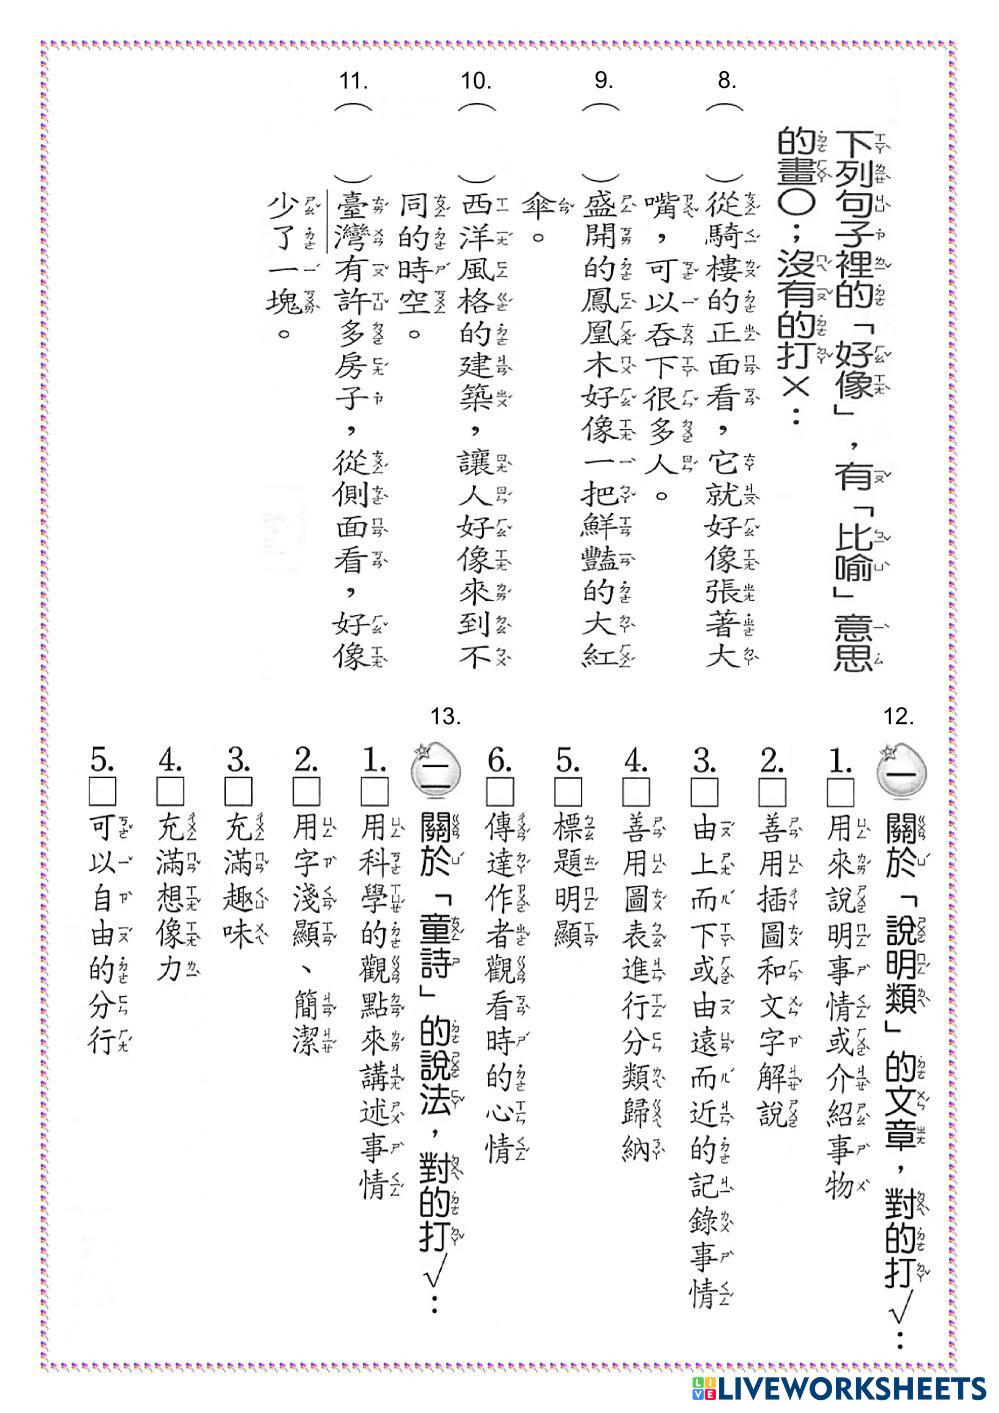 下列句子裡的「好像」，有「比喻」意思
的畫○；沒有的打×：
8.
（　）從騎樓的正面看，它就好像張著大
嘴，可以吞下很多人。
9.
（　）盛開的鳳凰木好像一把鮮豔的大紅
傘。
10.
（　）西洋風格的建築，讓人好像來到不
同的時空。
11.
（　）臺灣有許多房子，從側面看，好像
少了一塊。
12.
一 關於「說明類」的文章，對的打√：
1.□用來說明事情或介紹事物
2.□善用插圖和文字解說
3.□由上而下或由遠而近的記錄事情
4.□善用圖表進行分類歸納
5.□標題明顯
6.□傳達作者觀看時的心情
13.
二 關於「童詩」的說法，對的打√：
1.□用科學的觀點來講述事情
2.□用字淺顯、簡潔
3.□充滿趣味
4.□充滿想像力
5.□可以自由的分行
LIVEWORKSHEETS